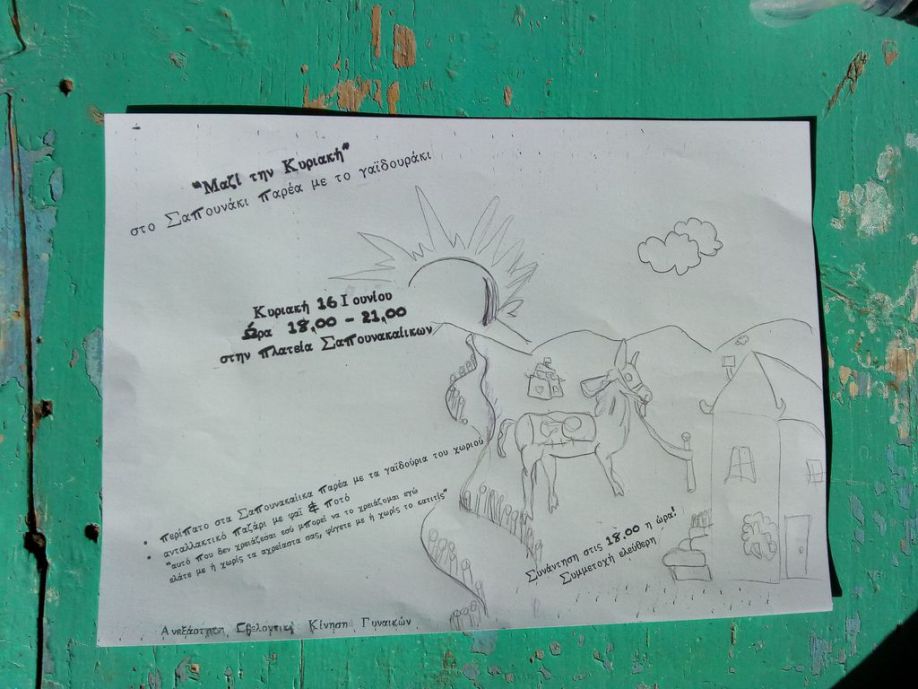 “Μαζί την Κυριακή”
στο Σαπουνάκι παρέα με το γαϊδουράκι
Κυριακή 16 Ιουνίου
Ώρα 18,00 - 21,00
στην πλατεία Σαπουνακαίικων
• περίπατο στα Σαπουνακαίικα παρέα με τα γαϊδούρια του χωριού
• ανταλλακτικό παζάρι με φαϊ & ποτό
“αυτό που δεν χρειάζεσαι εσύ μπορεί να το χρειάζομαι εγώ
ελάτε με ή χωρίς τα αχρείαστα σας, φύγετε με ή χωρίς το κατιτίς”
Συνάντηση στις 18,00 η ώρα!
Συμμετοχή ελεύθερη
Ανεξάρτητη Κίνηση Γυναικών